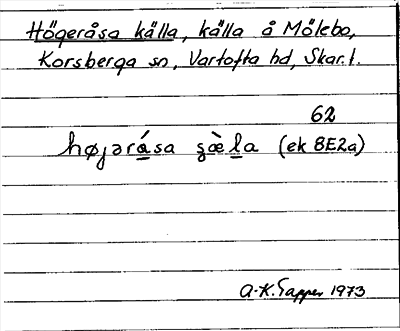 Högeråsa källa, källa å Mölebo,
Korsberga sn, Vartofta hd, Skar. l.
62
højərása şæ̀la (ek 8E2a)
A-K. Tapper 1973